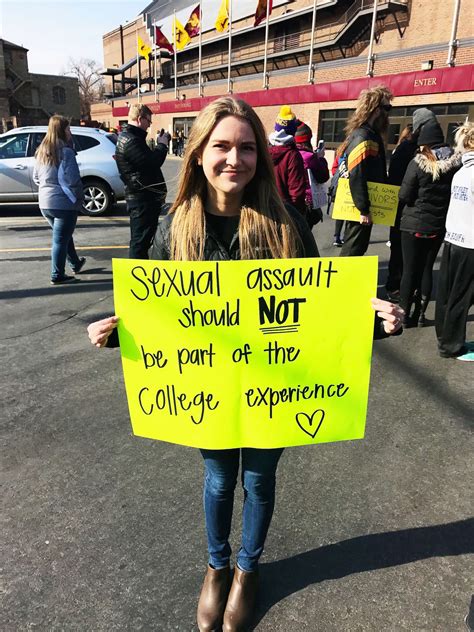 ENTER
SURVIVORS
Sexual assault
should NOT
be part of the
college experience